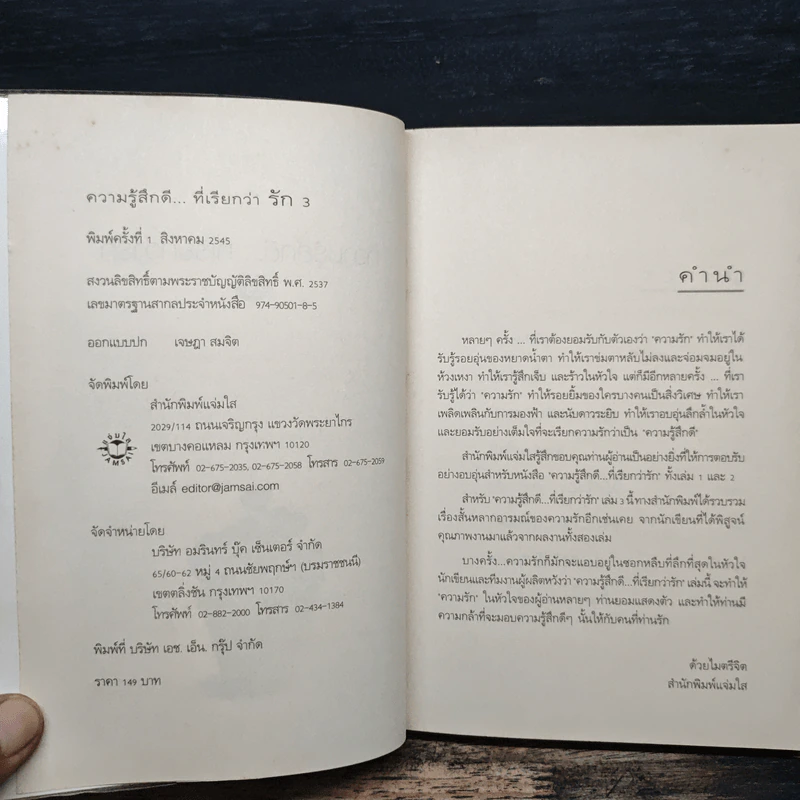 ความรู้สึกดี... ที่เรียกว่า รัก 3
พิมพ์ครั้งที่ 1 สิงหาคม 2545
สงวนลิขสิทธิ์ตามพระราชบัญญัติลิขสิทธิ์ พ.ศ. 2537
เลขมาตรฐานสากลประจำหนังสือ 974-90501-8-5
ออกแบบปก เจษฎา สมจิต
จัดพิมพ์โดย
สำนักพิมพ์แจ่มใส
2029/114 ถนนเจริญกรุง แขวงวัดพระยาไกร
เขตบางคอแหลม กรุงเทพฯ 10120
โทรศัพท์ 02-675-2035, 02-675-2058 โทรสาร 02-675-2059
อีเมล์ editor@jamsai.com
จัดจำหน่ายโดย
บริษัท อมรินทร์ บุ๊ค เซ็นเตอร์ จำกัด
65/60-62 หมู่ 4 ถนนชัยพฤกษ์ฯ (บรมราชชนนี)
เขตตลิ่งชัน กรุงเทพฯ 10170
โทรศัพท์ 02-882-2000 โทรสาร 02-434-1384
พิมพ์ที่ บริษัท เอช. เอ็น. กรุ๊ป จำกัด
ราคา 149 บาท
คำนำ
หลายๆ ครั้ง ... ที่เราต้องยอมรับกับตัวเองว่า 'ความรัก' ทำให้เราได้
รับรู้รอยอุ่นของหยาดน้ำตา ทำให้เราข่มตาหลับไม่ลงและจ่อมจมอยู่ใน
ห้วงเหงา ทำให้เรารู้สึกเจ็บ และร้าวในหัวใจ แต่ก็มีอีกหลายครั้ง ... ที่เรา
รับรู้ได้ว่า 'ความรัก' ทำให้รอยยิ้มของใครบางคนเป็นสิ่งวิเศษ ทำให้เรา
เพลิดเพลินกับการมองฟ้า และนับดาวระยิบ ทำให้เราอบอุ่นลึกล้ำในหัวใจ
และยอมรับอย่างเต็มใจที่จะเรียกความรักว่าเป็น 'ความรู้สึกดี'
สำนักพิมพ์แจ่มใสรู้สึกขอบคุณท่านผู้อ่านเป็นอย่างยิ่งที่ให้การตอบรับ
อย่างอบอุ่นสำหรับหนังสือ 'ความรู้สึกดี...ที่เรียกว่ารัก' ทั้งเล่ม 1 และ 2
สำหรับ 'ความรู้สึกดี...ที่เรียกว่ารัก' เล่ม 3 นี้ ทางสำนักพิมพ์ได้รวบรวม
เรื่องสั้นหลากอารมณ์ของความรักอีกเช่นเคย จากนักเขียนที่ได้พิสูจน์
คุณภาพงานมาแล้วจากผลงานทั้งสองเล่ม
บางครั้ง...ความรักก็มักจะแอบอยู่ในซอกหลืบที่ลึกที่สุดในหัวใจ
นักเขียนและทีมงานผู้ผลิตหวังว่า 'ความรู้สึกดี...ที่เรียกว่ารัก' เล่มนี้ จะทำให้
'ความรัก' ในหัวใจของผู้อ่านหลายๆ ท่านยอมแสดงตัว และทำให้ท่านมี
ความกล้าที่จะมอบความรู้สึกดีๆ นั้นให้กับคนที่ท่านรัก
ด้วยไมตรีจิต
สำนักพิมพ์แจ่มใส